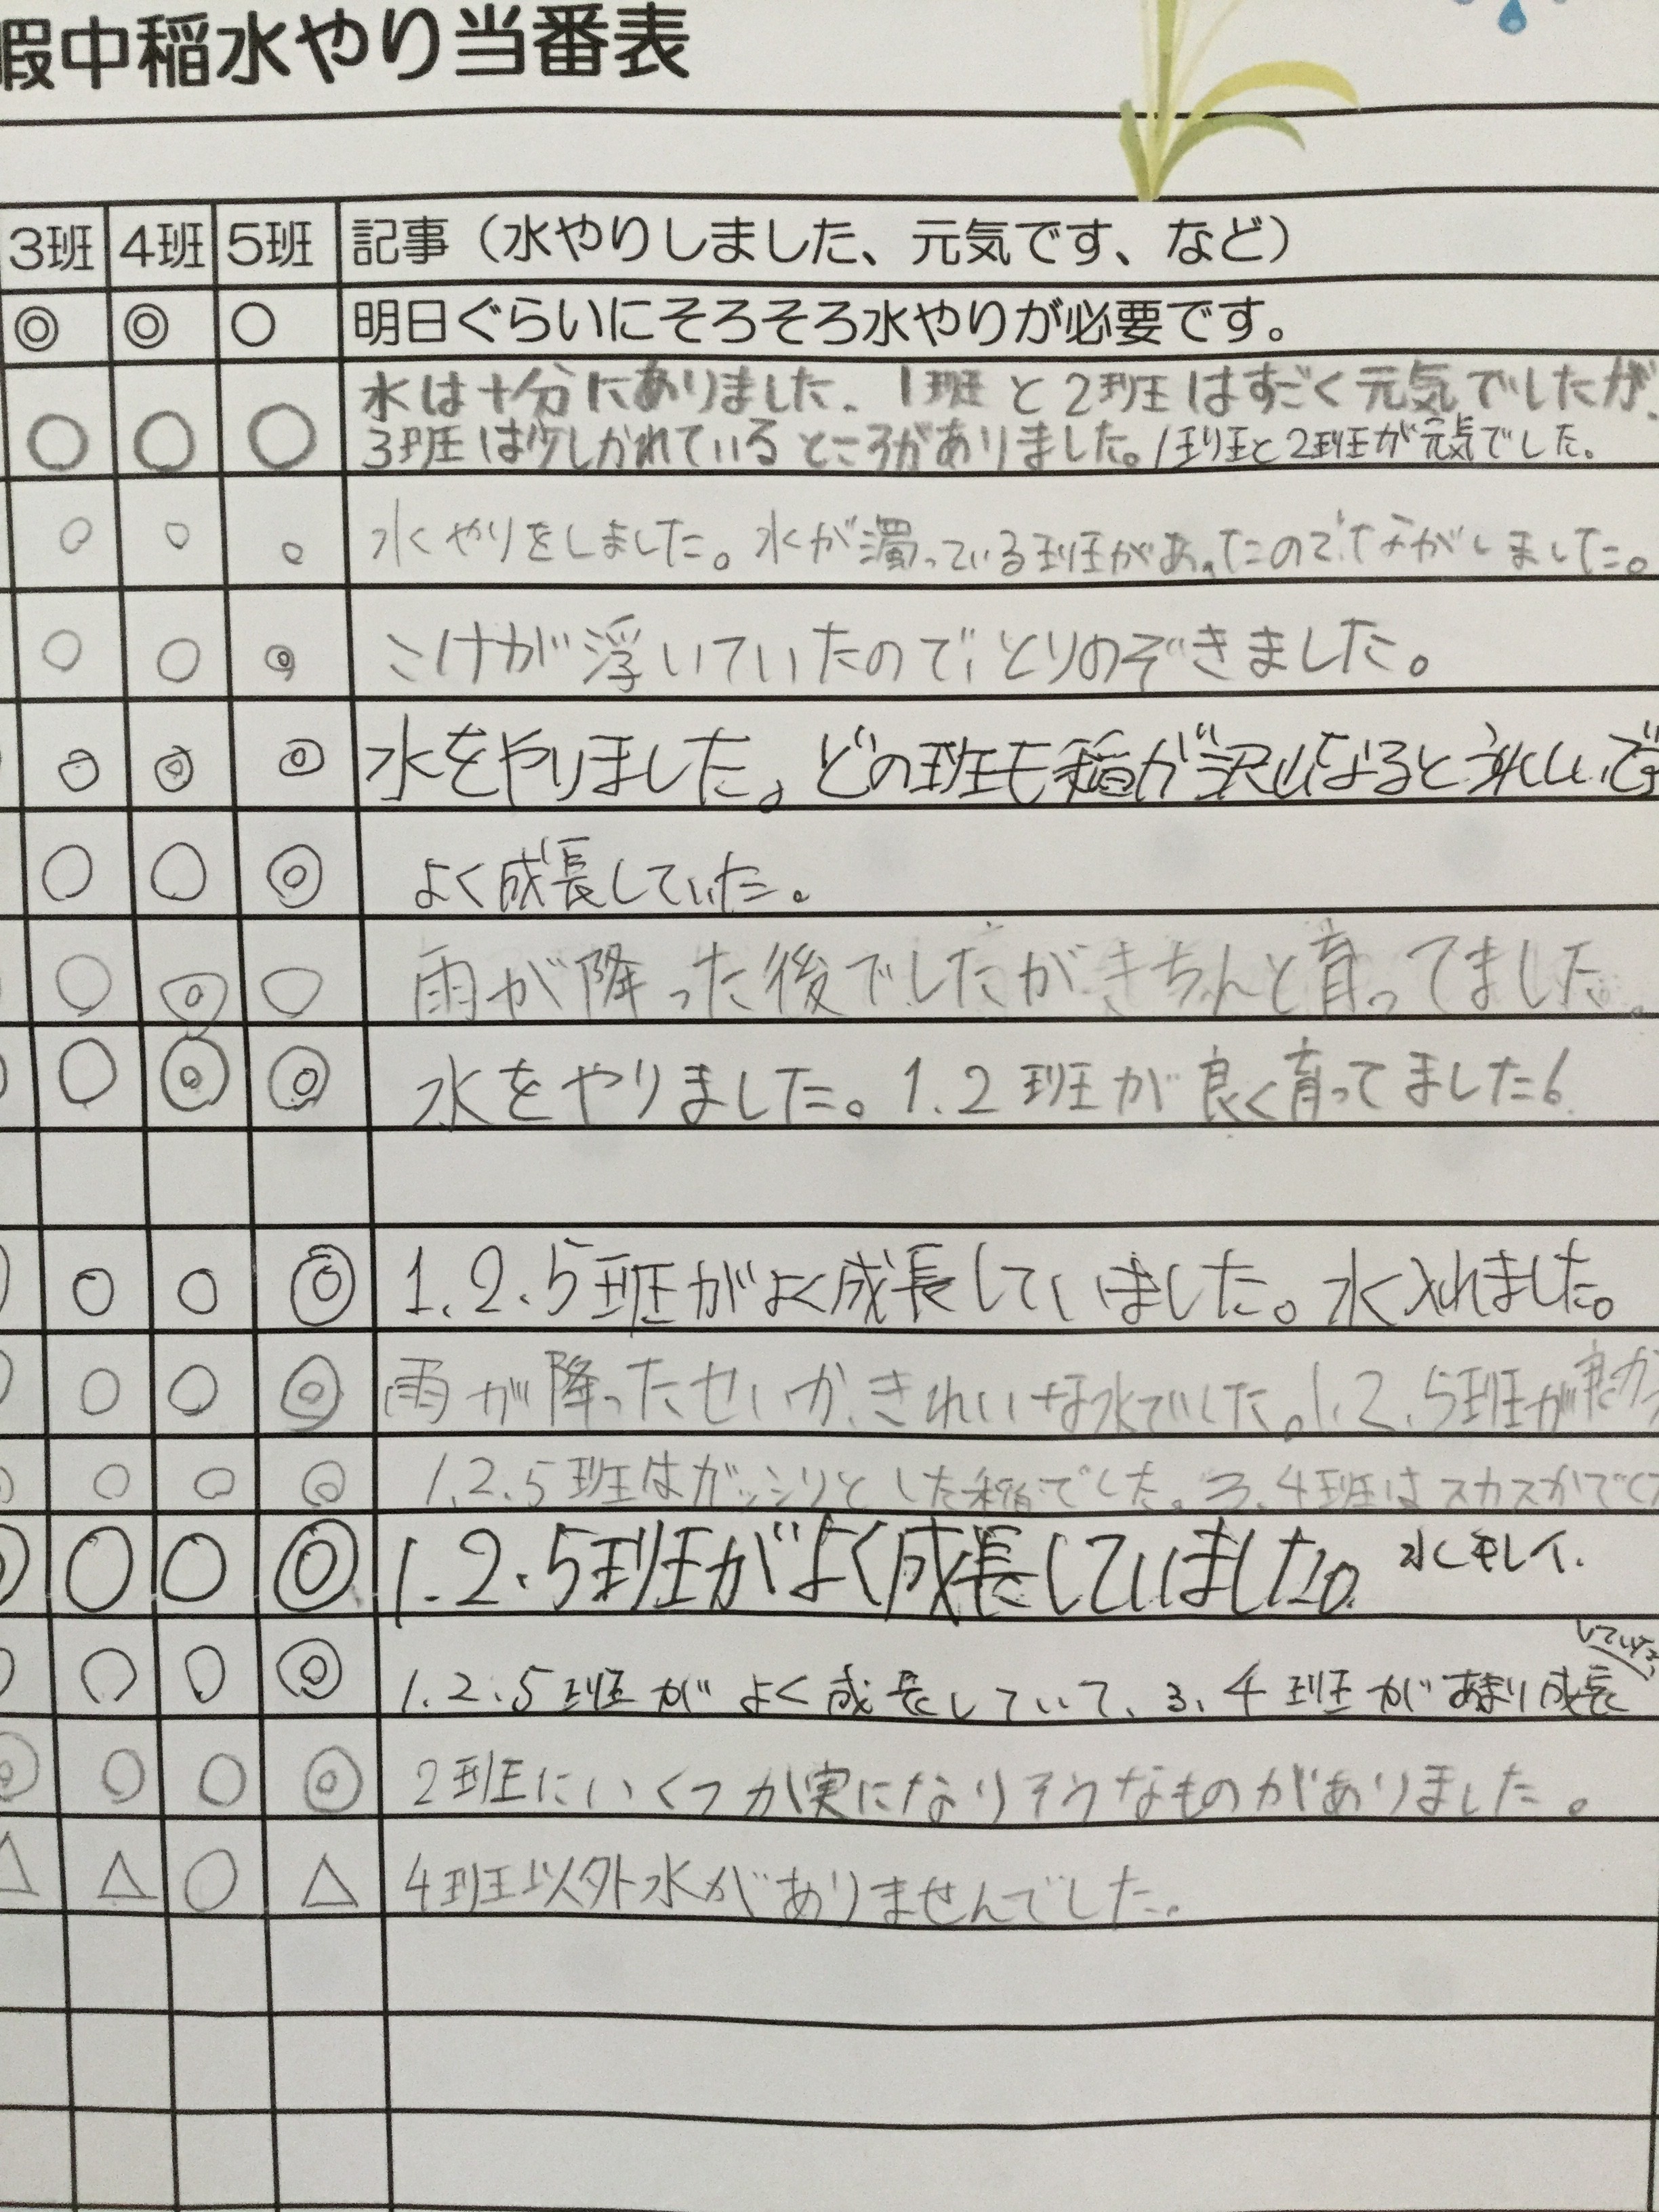 暇中稲水やり当番表
3班 4班 5班 記事（水やりしました、元気です、など）
◎ ◎ ○ 明日ぐらいにそろそろ水やりが必要です。
水は十分にありました。1班と2班はすごく元気でしたが、
○ ○ ○ 3班は少しかれているところがありました。1班と2班が元気でした。
○ ○ ○ 水やりをしました。水が濁っている班があったのでながしました。
○ ○ ◎ こけが浮いていたのでとりのぞきました。
◎ ◎ ◎ 水をやりました。どの班も稲が沢山なると
○ ○ ◎ よく成長していた。
○ ◎ ○ 雨が降った後でしたがきちんと育ってました。
○ ◎ ◎ 水をやりました。1.2班が良く育ってました。
○ ○ ◎ 1.2.5班がよく成長していました。水入れました。
○ ○ ◎ 雨が降ったせいか、きれいな水でした。1.2.5班が良かっ
○ ○ ◎ 1.2.5班はガッシリとした稲でした。3.4班はスカスカでし
○ ○ ◎ 1.2.5班がよく成長していました。水キレイ.
○ ○ ◎ 1.2.5班がよく成長していて、3.4班があまり成長
◎ ○ ○ ◎ 2班にいくつか実になりそうなものがありました。
△ △ ○ △ 4班以外水がありませんでした。